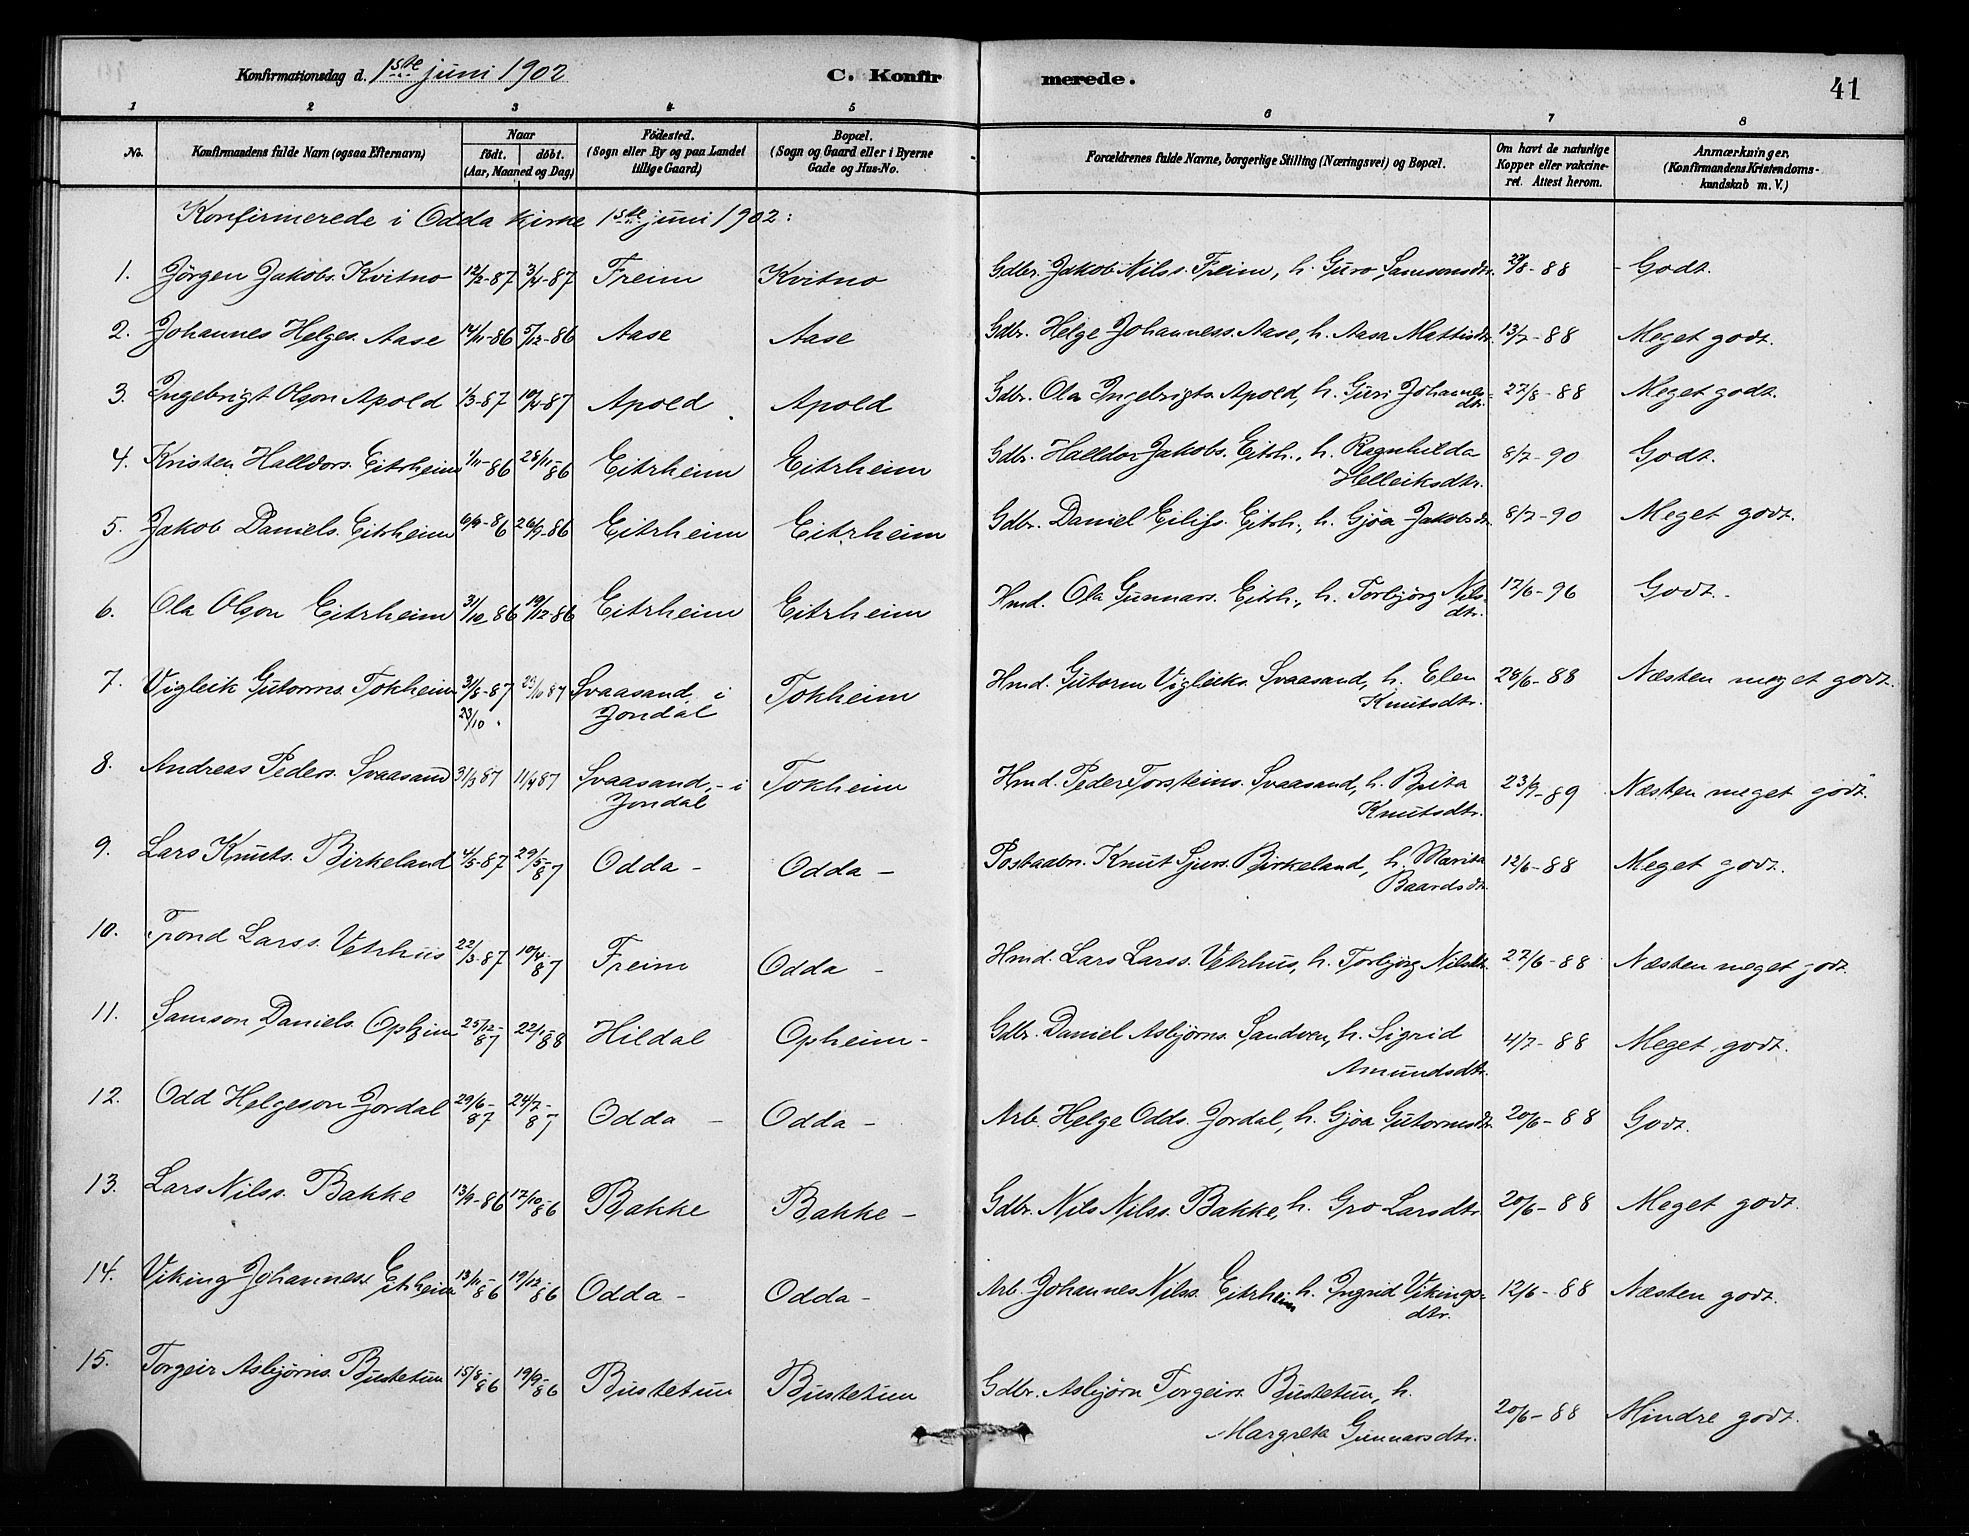 Konfirmationsdag d. 1ste juni 1902 C. Konfirmerede. 41
1 2 3 4 5 6 7 8
No. Konfirmandens fulde Navn (ogsaa Efternavn) Naar födt. döbt. (Aar, Maaned og Dag) Födested. (Sogn eller By og paa Landet tillige Gaard) Bopæl. (Sogn og Gaard eller i Byerne Gade og Hus-No. Forældrenes fulde Navne, borgerlige Stilling (Næringsvei) og Bopæl. Om havt de naturlige Kopper eller vakcineret. Attest herom. Anmærkninger. (Konfirmandens Kristendomskundskab m. V.)
Konfirmerede i Odda kirke 1ste juni 1902:
1. Jørgen Jakobs. Kvitno 12/2-87 3/4-87 Freim Kvitno Gdbr. Jakob Nilss. Freim, h. Guro Samsonsdtr. /8-88 Godt.
2. Johannes Helges. Aase 14/11-86 5/12-86 Aase Aase Gdbr. Helge Johanness. Aase, h. Aasa Mattisdtr. 13/7-88 Meget godt.
3. Ingebrigt Olson Apold 1/3-87 10/4-87 Apold Apold Gdbr. Ola Ingebrigts. Apold, h. Guri Johannesdtr. 27/8-88 Meget godt.
4. Kristen Halldors. Eitrheim 1/11-86 28/11-86 Eitrheim Eitrheim Gdbr. Halldor Jakobs. Eitrh., h. Ragnhilda
Helleiksdtr. 8/7-90 Godt.
5. Jakob Daniels. Eitrheim 6/9-86 26/9-86 Eitrheim Eitrheim Gdbr. Daniel Eilifs. Eitrh., h. Gjøa Jakobsdtr. 8/7-90 Meget godt.
6. Ola Olson Eitrheim 31/10-86 19/12-86 Eitrheim Eitrheim Hmd. Ola Gunnars. Eitrh., h. Torbjørg Nilsdtr. 17/6-96 Godt.
7. Vigleik Gutorms. Tokheim 31/8-87 23/10. 23/10 87 Svaasand i
Jondal Tokheim Hmd. Gutorm Vigleiks. Svaasand, h. Elen
Knutsdtr. 28/6-88 Næsten meget godt.
8. Andreas Peders. Svaasand 31/3 87 11/4 87 Svaasand, - i
Jondal Tokheim Hmd. Peder Torsteins. Svaasand, h. Brita
Knutsdtr. 23/9-89 Næsten meget godt.
9. Lars Knuts. Birkeland 4/5-87 29/5-87 Odda - Odda - Postaabn. Knut Sjurs. Birkeland, h. Marita
Baardsdtr. 12/6-88 Meget godt.
10. Trond Larss. Vetrhus 22/3-87 10/4-87 Freim Odda - Hmd. Lars Larss. Vetrhus, h. Torbjørg Nilsdtr. 27/6-88 Næsten meget godt.
11. Samson Daniels. Opheim 25/12-87 22/1-88 Hildal Opheim - Gdbr. Daniel Asbjørns. Sandven, h. Sigrid
Amundsdtr. 4/7-88 Meget godt.
12. Odd Helgeson Jordal 29/6-87 24/7-87 Odda - Odda - Arb. Helge Odds. Jordal, h. Gjøa Gutormsdtr. 20/6-88 Godt.
13. Lars Nilss. Bakke 13/9-86 17/10-86 Bakke Bakke - Gdbr. Nils Nilss. Bakke, h. Gro Larsdtr. 20/6-88 Meget godt.
14. Viking Johanness. Eitrheim 13/11-86 19/12-86 Odda - Odda - Arb. Johannes Nilss. Eitrheim h. Ingrid Vikingsdtr. 12/6-88 Næsten godt.
15. Torgeir Asbjørns. Bustetun 15/8-86 19/9-86 Bustetun Bustetun Gdbr. Asbjørn Torgeirs. Bustetun, h.
Margreta Gunnarsdtr. 20/6-88 Mindre godt.